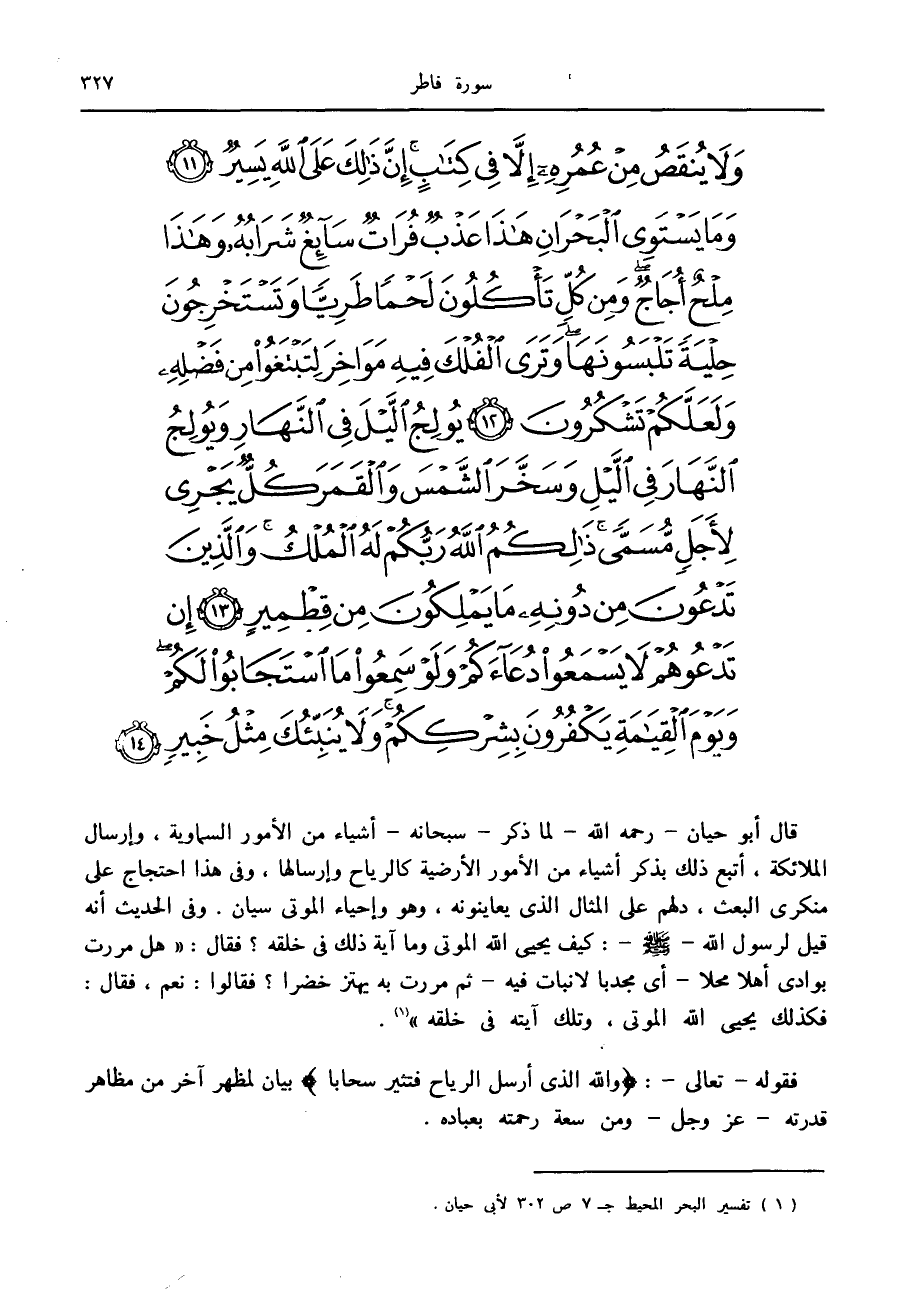 سورة فاطر ٣٢٧
وَلَا يُنقَصُ مِنْ عُمُرِهِۦٓ إِلَّا فِى كِتَٰبٍ ۚ إِنَّ ذَٰلِكَ عَلَى ٱللَّهِ يَسِيرٌ ﴿١١﴾
وَمَا يَسْتَوِى ٱلْبَحْرَانِ هَٰذَا عَذْبٌ فُرَاتٌ سَآئِغٌ شَرَابُهُۥ وَهَٰذَا
مِلْحٌ أُجَاجٌ ۖ وَمِن كُلٍّ تَأْكُلُونَ لَحْمًا طَرِيًّا وَتَسْتَخْرِجُونَ
حِلْيَةً تَلْبَسُونَهَا ۖ وَتَرَى ٱلْفُلْكَ فِيهِ مَوَاخِرَ لِتَبْتَغُوا۟ مِن فَضْلِهِۦ
وَلَعَلَّكُمْ تَشْكُرُونَ ﴿١٢﴾ يُولِجُ ٱلَّيْلَ فِى ٱلنَّهَارِ وَيُولِجُ
ٱلنَّهَارَ فِى ٱلَّيْلِ وَسَخَّرَ ٱلشَّمْسَ وَٱلْقَمَرَ كُلٌّ يَجْرِى
لِأَجَلٍ مُّسَمًّى ۚ ذَٰلِكُمُ ٱللَّهُ رَبُّكُمْ لَهُ ٱلْمُلْكُ ۚ وَٱلَّذِينَ
تَدْعُونَ مِن دُونِهِۦ مَا يَمْلِكُونَ مِن قِطْمِيرٍ ﴿١٣﴾ إِن
تَدْعُوهُمْ لَا يَسْمَعُوا۟ دُعَآءَكُمْ وَلَوْ سَمِعُوا۟ مَا ٱسْتَجَابُوا۟ لَكُمْ ۖ
وَيَوْمَ ٱلْقِيَٰمَةِ يَكْفُرُونَ بِشِرْكِكُمْ ۚ وَلَا يُنَبِّئُكَ مِثْلُ خَبِيرٍ ﴿١٤﴾
قال أبو حيان – رحمه الله – لما ذكر – سبحانه – أشياء من الأمور السماوية ، وإرسال
الملائكة ، أتبع ذلك بذكر أشياء من الأمور الأرضية كالرياح وإرسالها ، وفى هذا احتجاج على
منكرى البعث ، دلهم على المثال الذى يعاينونه ، وهو وإحياء الموتى سيان . وفى الحديث أنه
قيل لرسول الله – ﷺ – : كيف يحيى الله الموتى وما آية ذلك فى خلقه ؟ فقال : « هل مررت
بوادى أهلا محلا – أى مجدبا لانبات فيه – ثم مررت به يهتز خضرا ؟ فقالوا : نعم ، فقال :
فكذلك يحيى الله الموتى ، وتلك آيته فى خلقه »(١) .
فقوله – تعالى – : ﴿والله الذى أرسل الرياح فتثير سحابا ﴾ بيان لمظهر آخر من مظاهر
قدرته – عز وجل – ومن سعة رحمته بعباده .
( ١ ) تفسير البحر المحيط جـ ٧ ص ٣٠٢ لأبى حيان .